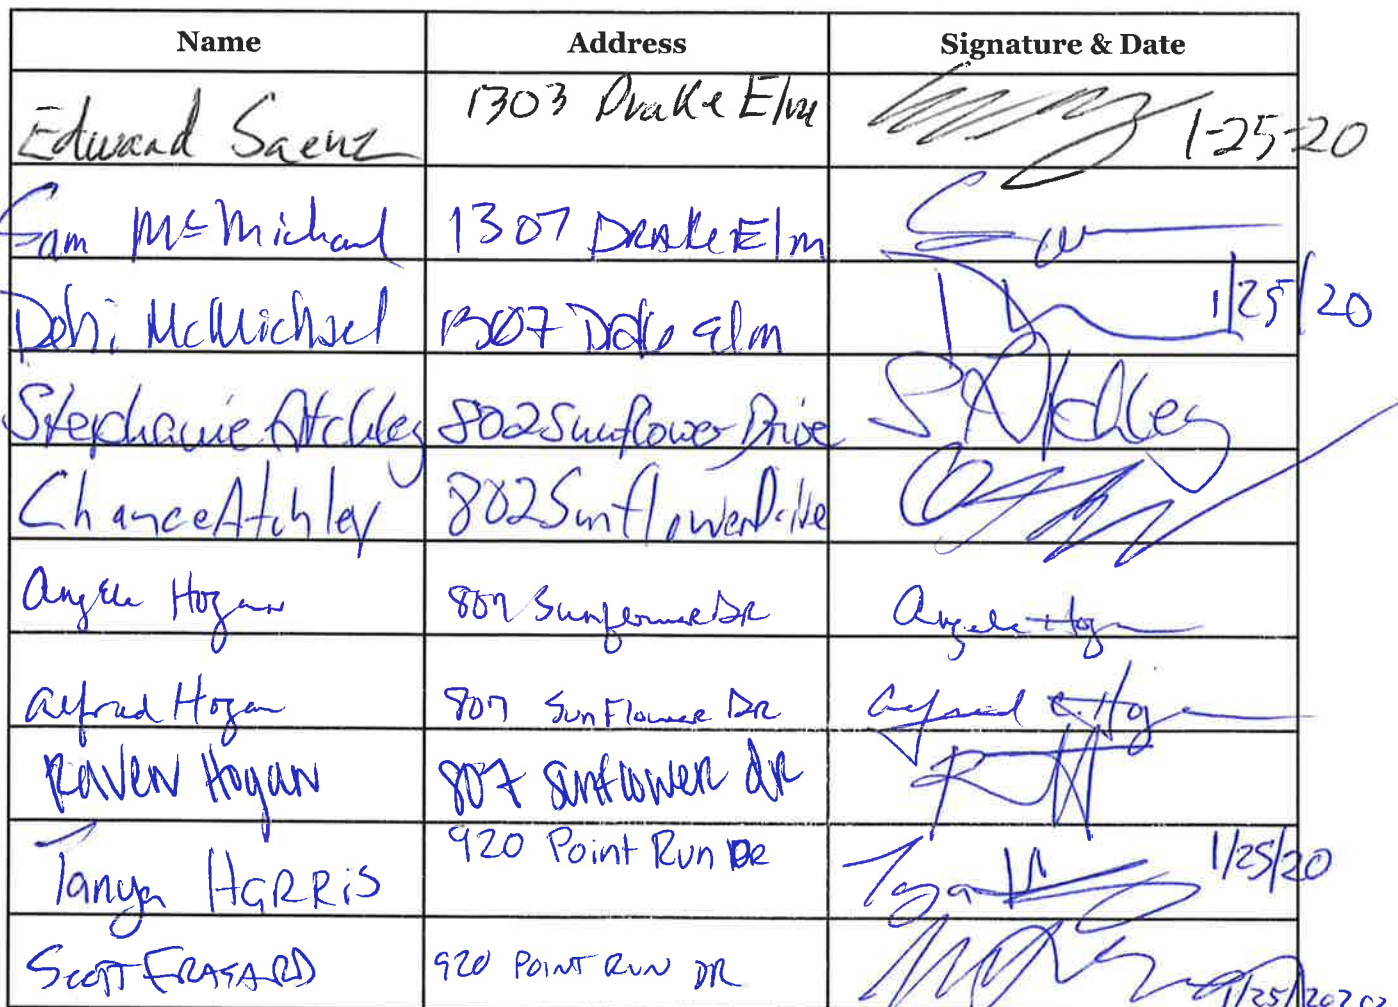 Name Address Signature & Date
Edward Saenz 1303 Drake Elm 1-25-20
Sam McMichael 1307 Drake Elm
Debi McMichael 1307 Drake Elm 1/25/20
Stephanie Atchley 802 Sunflower Drive S Atchley
Chance Atchley 802 Sunflower Drive
Angela Hogan 807 Sunflower DR Angela Hogan
Alfred Hogan 807 SunFlower DR Alfred C. Hogan
Raven Hogan 807 Sunflower dr
Tanya HARRiS 920 Point Run DR 1/25/20
SCOTT FRASARD 920 POINT RUN DR 1/25/2020